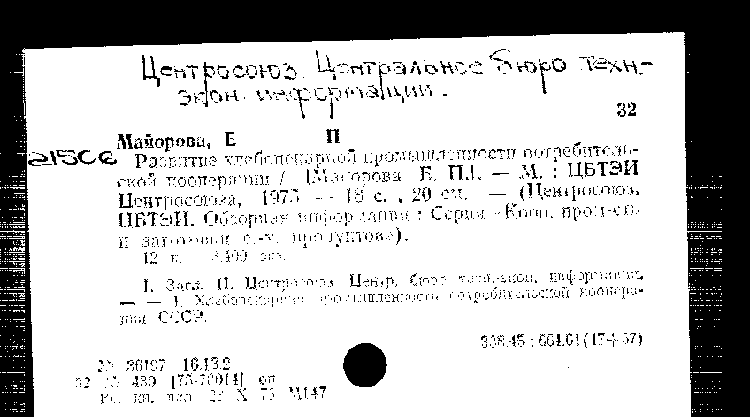 Центросоюз. Центральное бюро техн.-
экон. информации.
32
Майорова, Е П
21506 Развитие хлебопекарной промышленности потребитель-
ской кооперации / [Майорова Е. П.]. — М. : ЦБТЭИ
Центросоюза, 1975 — 18 с. , 20 см. — (Центросоюз.
ЦБТЭИ. Обзорная информация : Серия «Кооп. пром-сть
и заготовки с.-х. продуктов).
12 к. экз.
I. Загл. II. Центросоюз. Центр. бюро техн.-экон. информации.
— — 1. Хлебопекарная промышленность потребительской коопера-
ции СССР.
338.45 : 664.61 (47+57)
16.13.2
32 № [75-70914] оп
Вс. кн. пал. X 75 М147